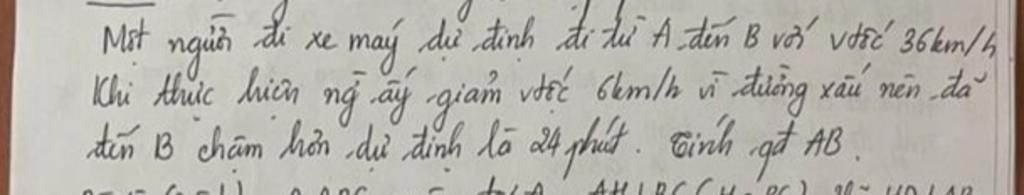 Một người đi xe máy dự định đi từ A đến B với vtốc 36km/h
Khi thực hiện ng ấy giảm vtốc 6km/h vì đường xấu nên đã
đến B chậm hơn dự định là 24 phút. Tính qđ AB.